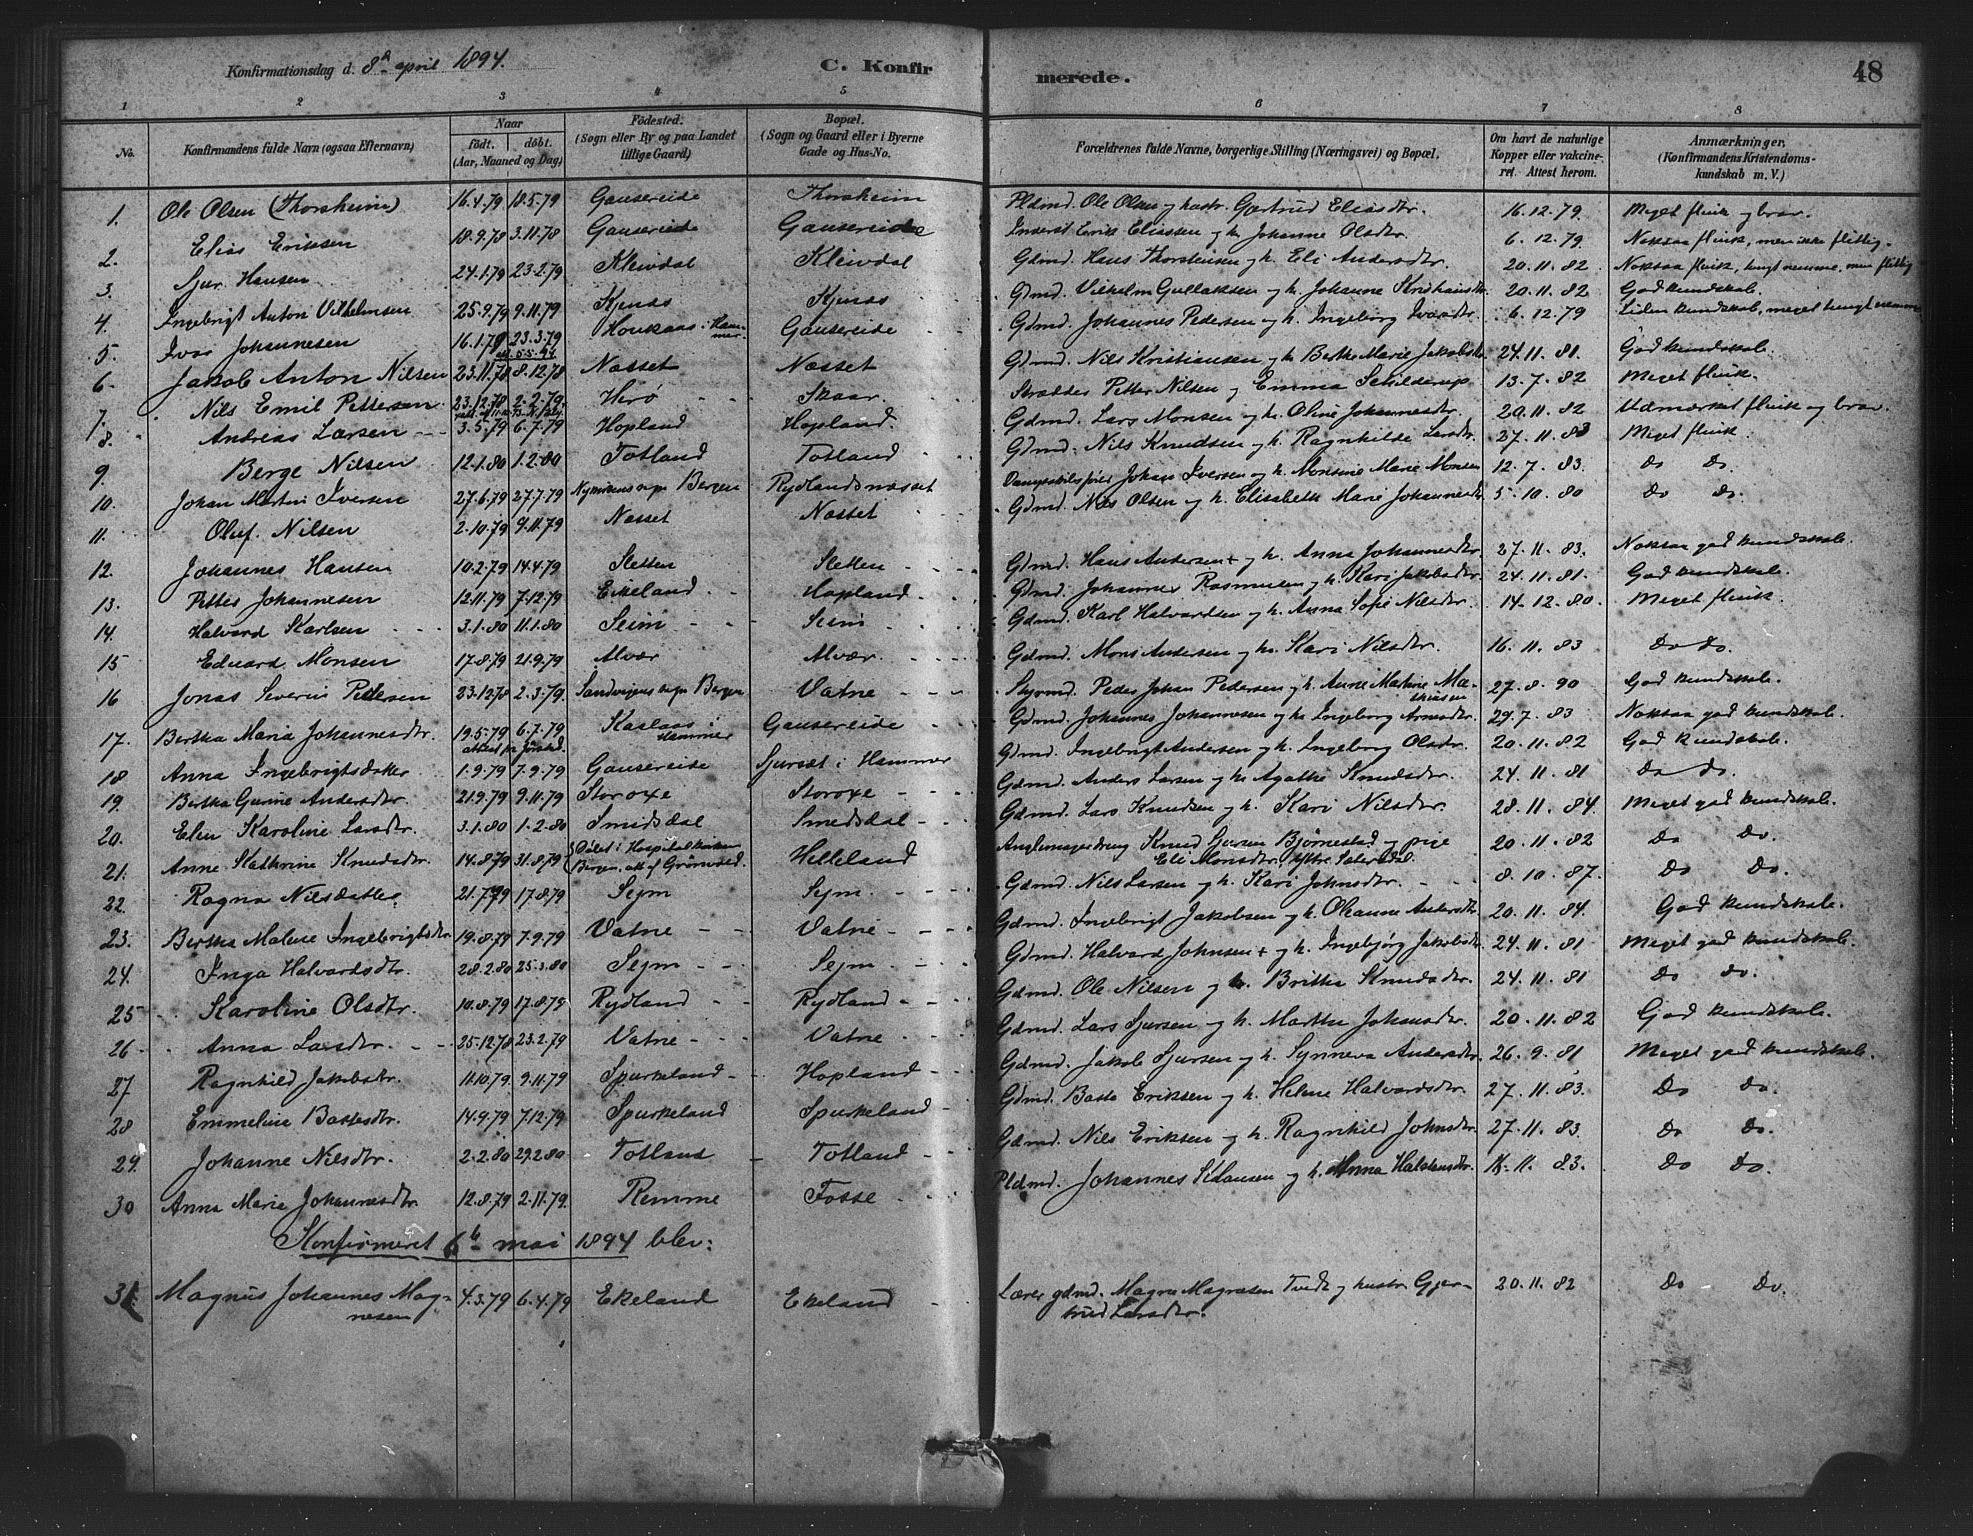 Konfirmationsdag d. 8de april 1894. C. Konfirmerede. 48
1 2 3 4 5 6 7 8
No. Konfirmandens fulde Navn (ogsaa Efternavn) Naar født. døbt. (Aar, Maaned og Dag) Fødested. (Sogn eller By og paa Landet tillige Gaard) Bopæl. (Sogn og Gaard eller i Byerne Gade og Hus-No. Forældrenes fulde Navne, borgerlige Stilling (Næringsvei) og Bopæl. Om havt de naturlige Kopper eller vakcineret. Attest herom. Anmærkninger. (Konfirmandens Kristendomskundskab m. V.)
1. Ole Olsen (Thorsheim) 16.4.79 18.5.79 Gausereide Thorsheim Pldmd. Ole Olsen og hustr. Gjertrud Eliasdtr. 16.12.79. Meget flink og brav.
2. Elias Eriksen 18.9.78 3.11.78 Gausereide Gausereide Inderst Erik Eliassen og h. Johanne Olsdtr. 6.12.79. Noksaa flink, men ikke flittig.
3. Sjur Hansen 24.1.79 23.2.79 Kleivdal Kleivdal Gdmd. Hans Thorsteinsen og h. Eli Andersdtr. 20.11.82 Noksaa flink, tungt nemme, men flittig
4. Ingebrigt Anton Vilhelmsen 25.9.79 9.11.79 Kjenas Kjenas Gdmd. Vilhelm Gullaksen og h. Johanne Kristiansdtr. 20.11.82 God kundskab.
5. Ivar Johannesen 16.1.79 23.3.79 i Hammer. Gausereide Gdmd. Johannes Pedersen og h. Ingeborg Ivarsdtr. 6.12.79 Liden kundskab, meget tungt nemme
6. Jakob Anton Nilsen 23.11.78 8.12.78 Næsset Næsset Gdmd. Nils Kristiansen og h. Berthe Marie Jakobsdtr. 24.11.81. God kundskab.
7. Nils Emil Pettersen 23.12.78 2.2.79 Herø Skaar. Skrædder Petter Nilsen og Emma Schilderup 13.7.82 Meget flink.
8. Andreas Larsen 3.5.79 6.7.79 Hopland Hopland. Gdmd. Lars Monsen og h. Oline Johannesdtr. 20.11.82 Udmærket flink og brav.
9. Berge Nilsen 12.1.80 1.2.80 Totland Totland Gdmd. Nils Knudsen og h. Ragnhilde Larsdtr. 27.11.83 Meget flink.
10. Johan Martin Iversen 27.6.79 27.7.79 Nykirkens sogn Bergen Rydlandsnæsset Dampskibsfører Johan Iversen og h. Monsine Marie Monsen 12.7.83. Do Do.
11. Oluf Nilsen 2.10.79 9.11.79 Næsset Næsset Gdmd. Nils Olsen og h. Elisabeth Marie Johannesdtr. 5.10.80 Do Do.
12. Johannes Hansen 10.2.79 14.4.79 Sletten Sletten Gdmd. Hans Andersen + og h. Anna Johannesdtr. 27.11.83. Noksaa god kundskab.
13. Petter Johannesen 12.11.79 7.12.79 Eikeland Hopland Gdmd. Johannes Rasmussen og h. Kari Jakobsdtr. 24.11.81. God kundskab.
14. Halvard Karlsen 3.1.80 11.1.80 Seim Seim Gdmd. Karl Halvardsen og h. Anna Sofie Nilsdtr. 14.12.80. Meget flink.
15 Eduard Monsen 17.8.79 21.9.79 Alvær Alvær. Gdmd. Mons Andersen og h. Kari Nilsdtr. 16.11.83 Do Do.
16 Jonas Severin Pedersen 23.12.78 2.3.79. Sandvigens sogn Bergen Vatne Styrmd. Peder Johan Pedersen og h. Anne Martine Mathiasen 27.8.90 God kundskab.
17. Bertha Maria Johannesdtr. 19.5.79 6.7.79 i Hammer Gausereide Gdmd. Johannes Johannesen og h. Ingeborg Arnesdtr. 29.7.83 Noksaa god kundskab.
18 Anna Ingebrigtsdatter 1.9.79 7.9.79 Gausereide i Hammer Gdmd. Ingebrigt Andersen og h. Ingeborg Olsdtr. 20.11.82 God kundskab.
19. Bertha Gurine Andersdtr. 21.9.79 9.11.79 Storoxe Storoxe Gdmd. Anders Larsen og h. Agathe Knudsdtr. 24.11.81 Do Do.
20. Elen Karoline Larsdtr. 3.1.80 1.2.80 Smidsdal Smedsdal Gdmd. Lars Knudsen og h. Kari Nilsdtr. 28.11.84. Meget god kundskab.
21. Anne Kathrine Knudsdtr. 14.8.79 31.8.79 Døbt i Hospitalkirken Bergen, att. af Grønvold. Helleland Knud Sjursen Bjørnestad og pige Eli Monsdtr. 20.11.82 Do Do.
22. Ragna Nilsdatter 21.7.79 17.8.79 Sejm Sejm. Gdmd. Nils Larsen og h. Kari Johnsdtr. 8.10.87. Do Do.
23. Bertha Malene Ingebrigtsdtr. 19.8.79 7.9.79 Vatne Vatne Gdmd. Ingebrigt Jakobsen og h. Oleanne Andersdtr. 20.11.84. God kundskab.
24. Inga Halvardsdtr. 28.2.80 25.3.80 Sejm Sejm. Gdmd. Halvard Johnsen + og h. Ingebjørg Jakobsdtr. 24.11.81 Meget god kundskab.
25 Karoline Olsdtr. 10.8.79 17.8.79 Rydland Rydland Gdmd. Ole Nilsen og h. Britha Knudsdtr. 24.11.81 Do Do.
26 Anna Larsdtr. 25.12.78 23.2.79 Vatne Vatne Gdmd. Lars Sjursen og h. Marthe Johansdtr. 20.11.82 God kundskab.
27 Ragnhild Jakobsdtr. 11.10.79. 9.11.79 Spurkeland Hopland Gdmd. Jakob Sjursen og h. Synneva Andersdtr. 26.9.81 Meget god kundskab.
28 Emmeline Bastesdtr. 14.9.79 7.12.79 Spurkeland Spurkeland Gdmd. Baste Eriksen og h. Helene Halvardsdtr. 27.11.83. Do Do.
29. Johanne Nilsdtr. 2.2.80 29.2.80 Totland Totland Gdmd. Nils Eriksen og h. Ragnhild Johnsdtr. 27.11.83. Do Do.
30 Anna Marie Johannesdtr. 12.8.79 2.11.79. Remme Fosse Pldmd. Johannes Klausen og h. Anna Halstensdtr. 11.83. Do Do.
Konfirmeret 6te mai 1894 blev:
31. Magnus Johannes Magnesen 4.3.79 6.4.79 Ekeland Ekeland Lærer gdmd. Magne Magnesen Tvedt og hustr. Gjertrud Larsdtr. 20.11.82 Do Do.